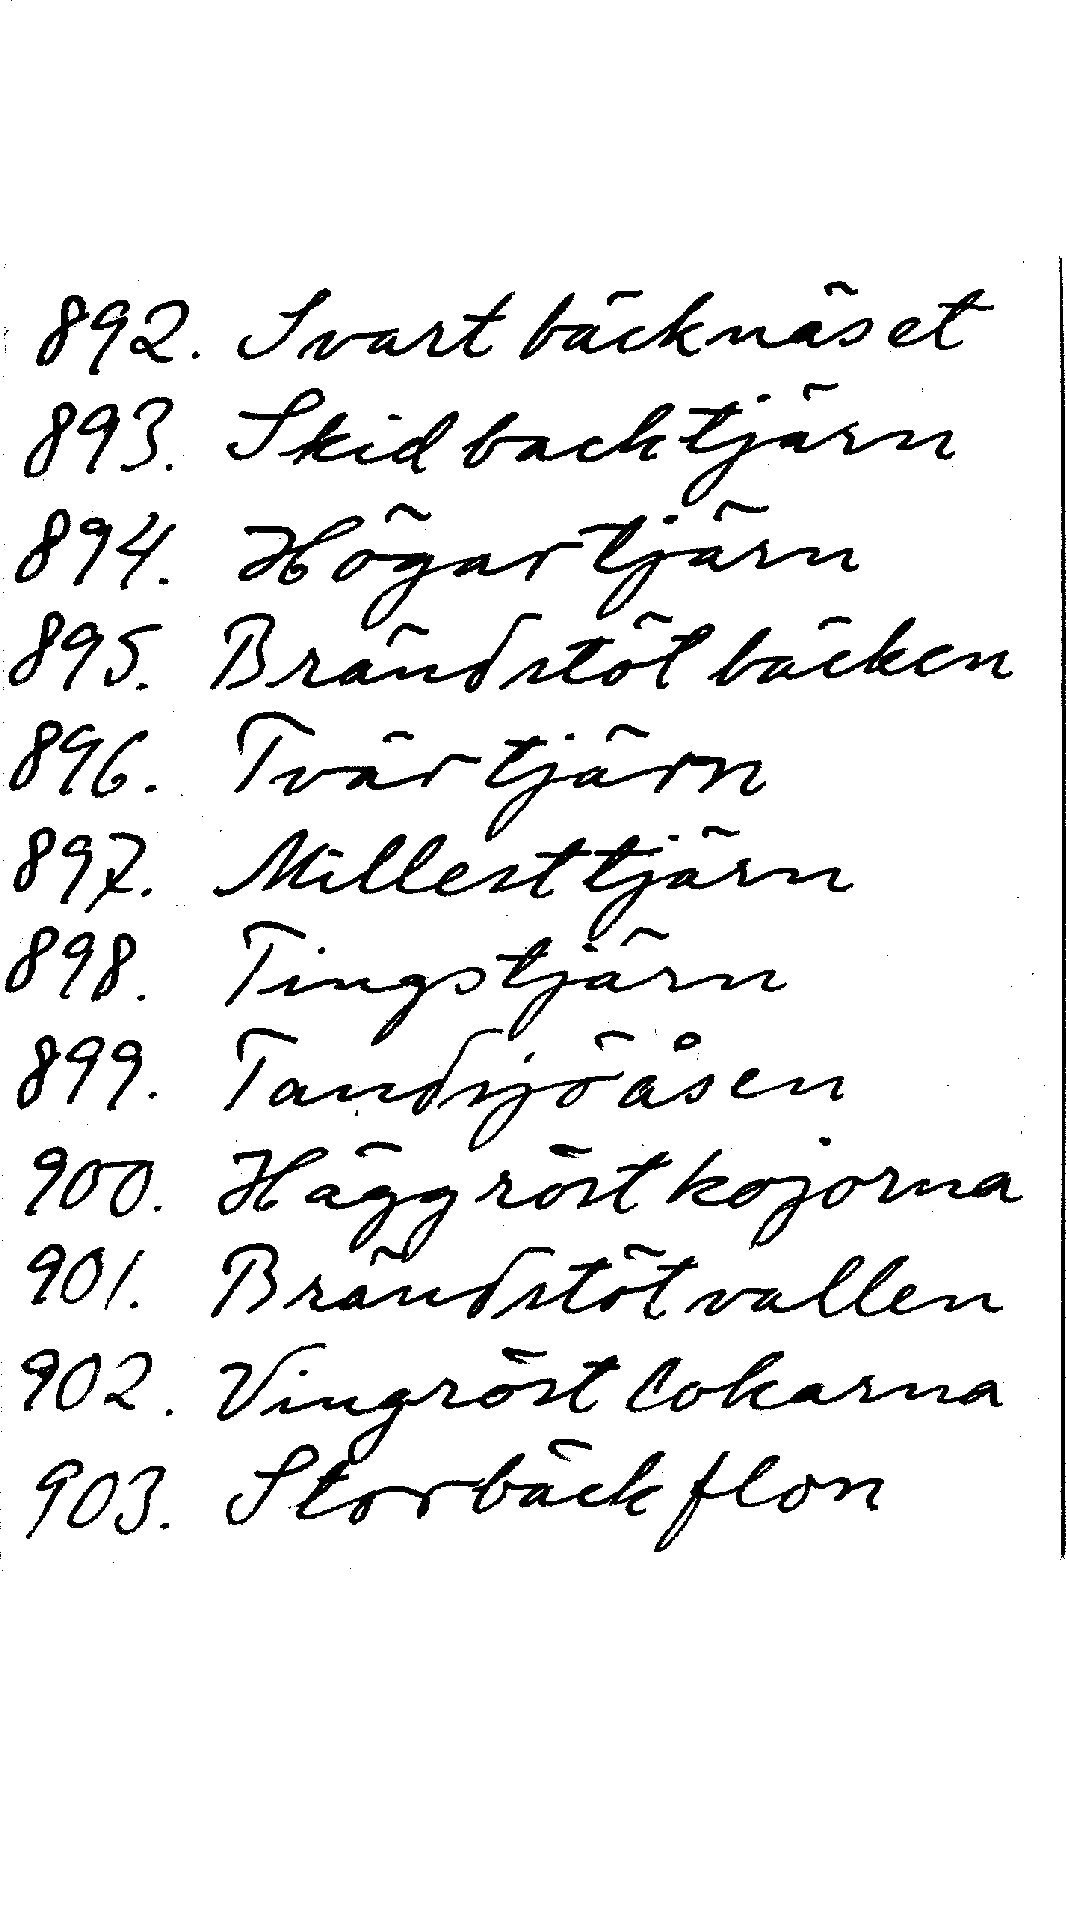 892. Svartbäcknäset
893. Skidbacktjärn
894. Högartjärn
895. Brändstötbäcken
896. Tvärtjärn
897. Millesttjärn
898. Tingstjärn
899. Tandsjöåsen
900. Häggröstkojorna
901. Brändstötvallen
902. Vingröstlokarna
903. Storbäckflon